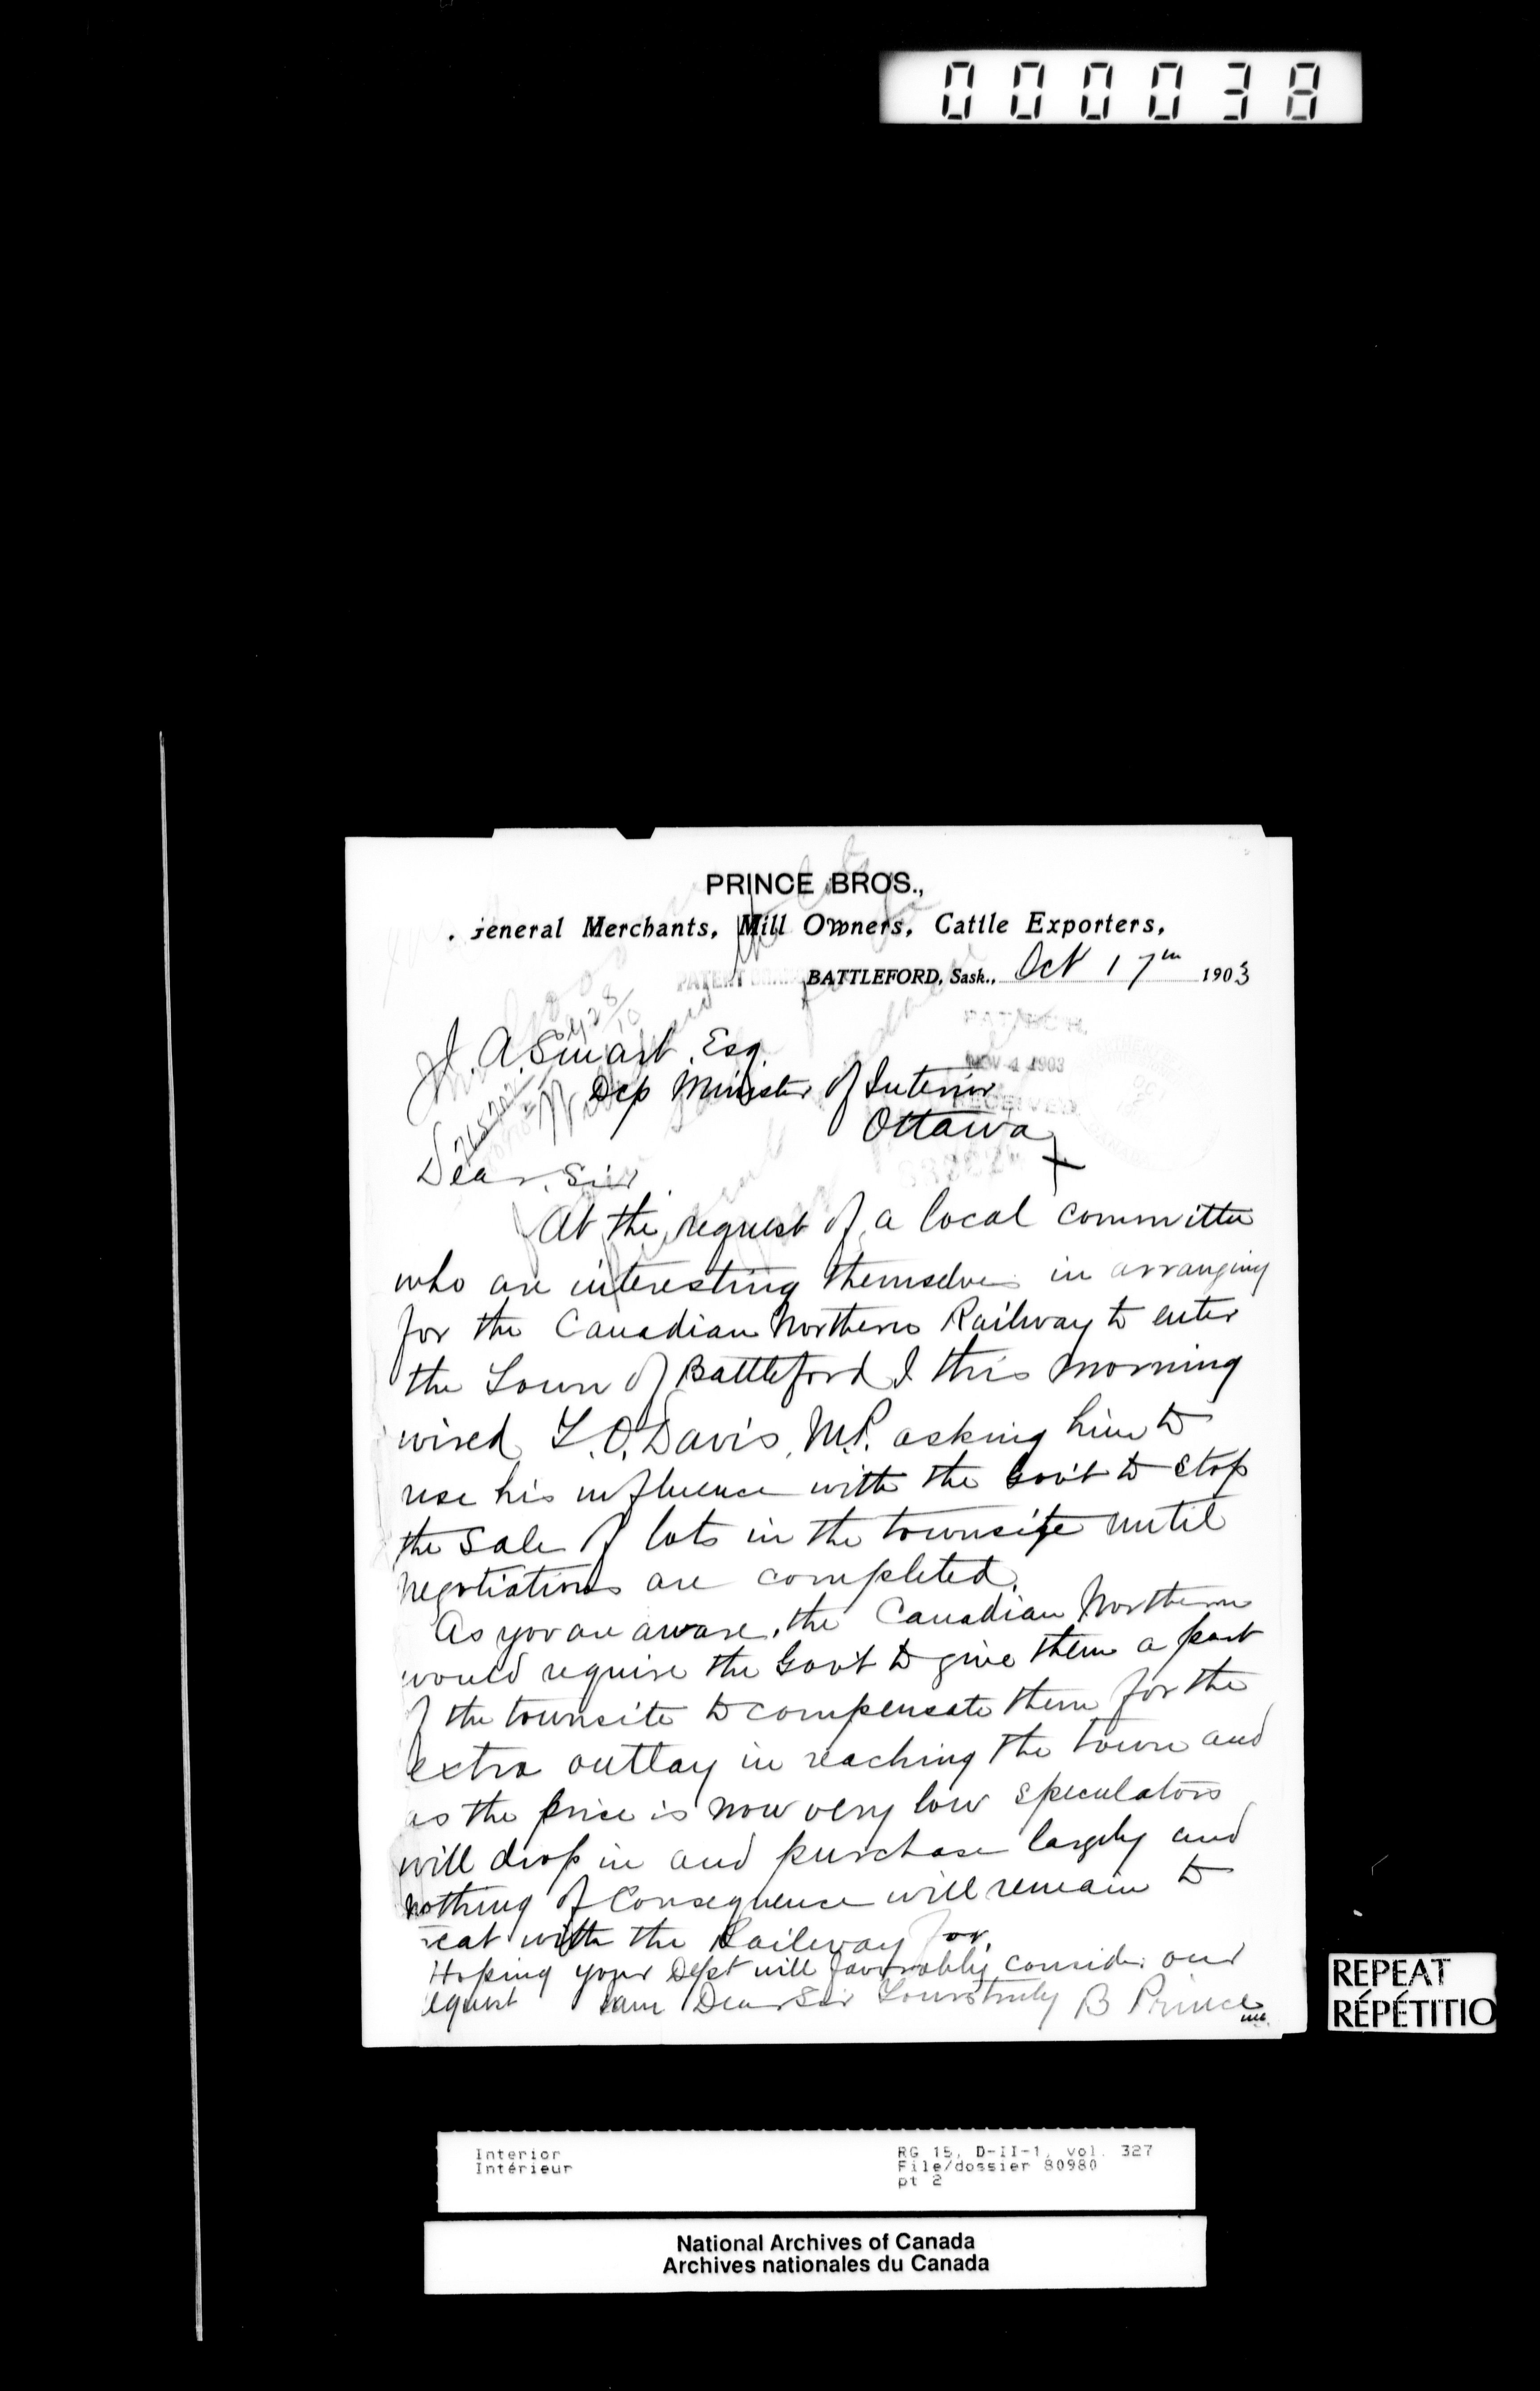 000038
PRINCE BROS.,
General Merchants, Mill Owners, Cattle Exporters,
BATTLEFORD, Sask., Oct 17th 1903
J. A. Smart, Esq.
Dep Minister of Interior
NOV 4 1903
RECEIVED
Ottawa
Dear Sir
At the request of a local committee
who are interesting themselves in arranging
for the Canadian Northern Railway to enter
the Town of Battleford I this morning
wired T.O. Davis, M.P. asking him to
use his influence with the Gov't to stop
the sale of lots in the townsite until
negotiations are completed.
As you are aware, the Canadian Northern
would require the Gov't to give them a part
of the townsite to compensate them for the
extra outlay in reaching the town and
as the price is now very low speculators
will drop in and purchase largely and
nothing of Consequence will remain to
reat with the Railway for.
Hoping your Dept will favorably consider our
equest I am Dear Sir Yours truly B Prince
REPEAT
RÉPÉTITIO
Interior
Intérieur
RG 15, D-II-1, vol. 327
File/dossier 80980
pt 2
National Archives of Canada
Archives nationales du Canada